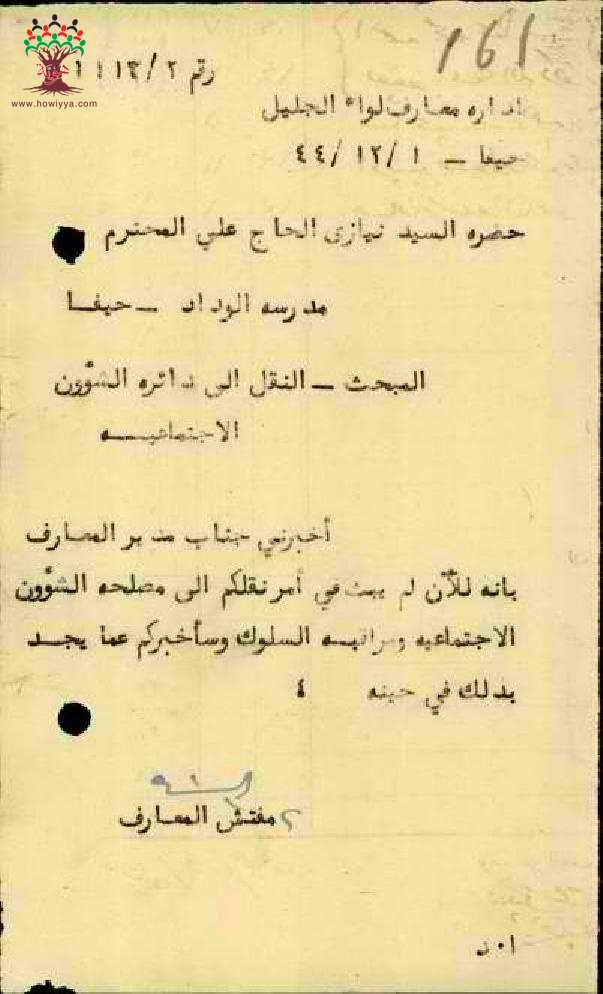 161
رقم ١١١٣/٢
www.howiyya.com
اداره معارف لواء الجليل
حيفا – ١ /١٢/ ٤٤
حضره السيد نيازى الحاج علي المحترم
مدرسه الوداد – حيفا
المبحث – النقل الى دائره الشؤون
الاجتماعيه
أخبرني جناب مدير المعارف
بانه للآن لم يبت في أمر نقلكم الى مصلحه الشؤون
الاجتماعيه ومراقبه السلوك وسأخبركم عما يجد
بذلك في حينه
مفتش المعارف
ا٠د